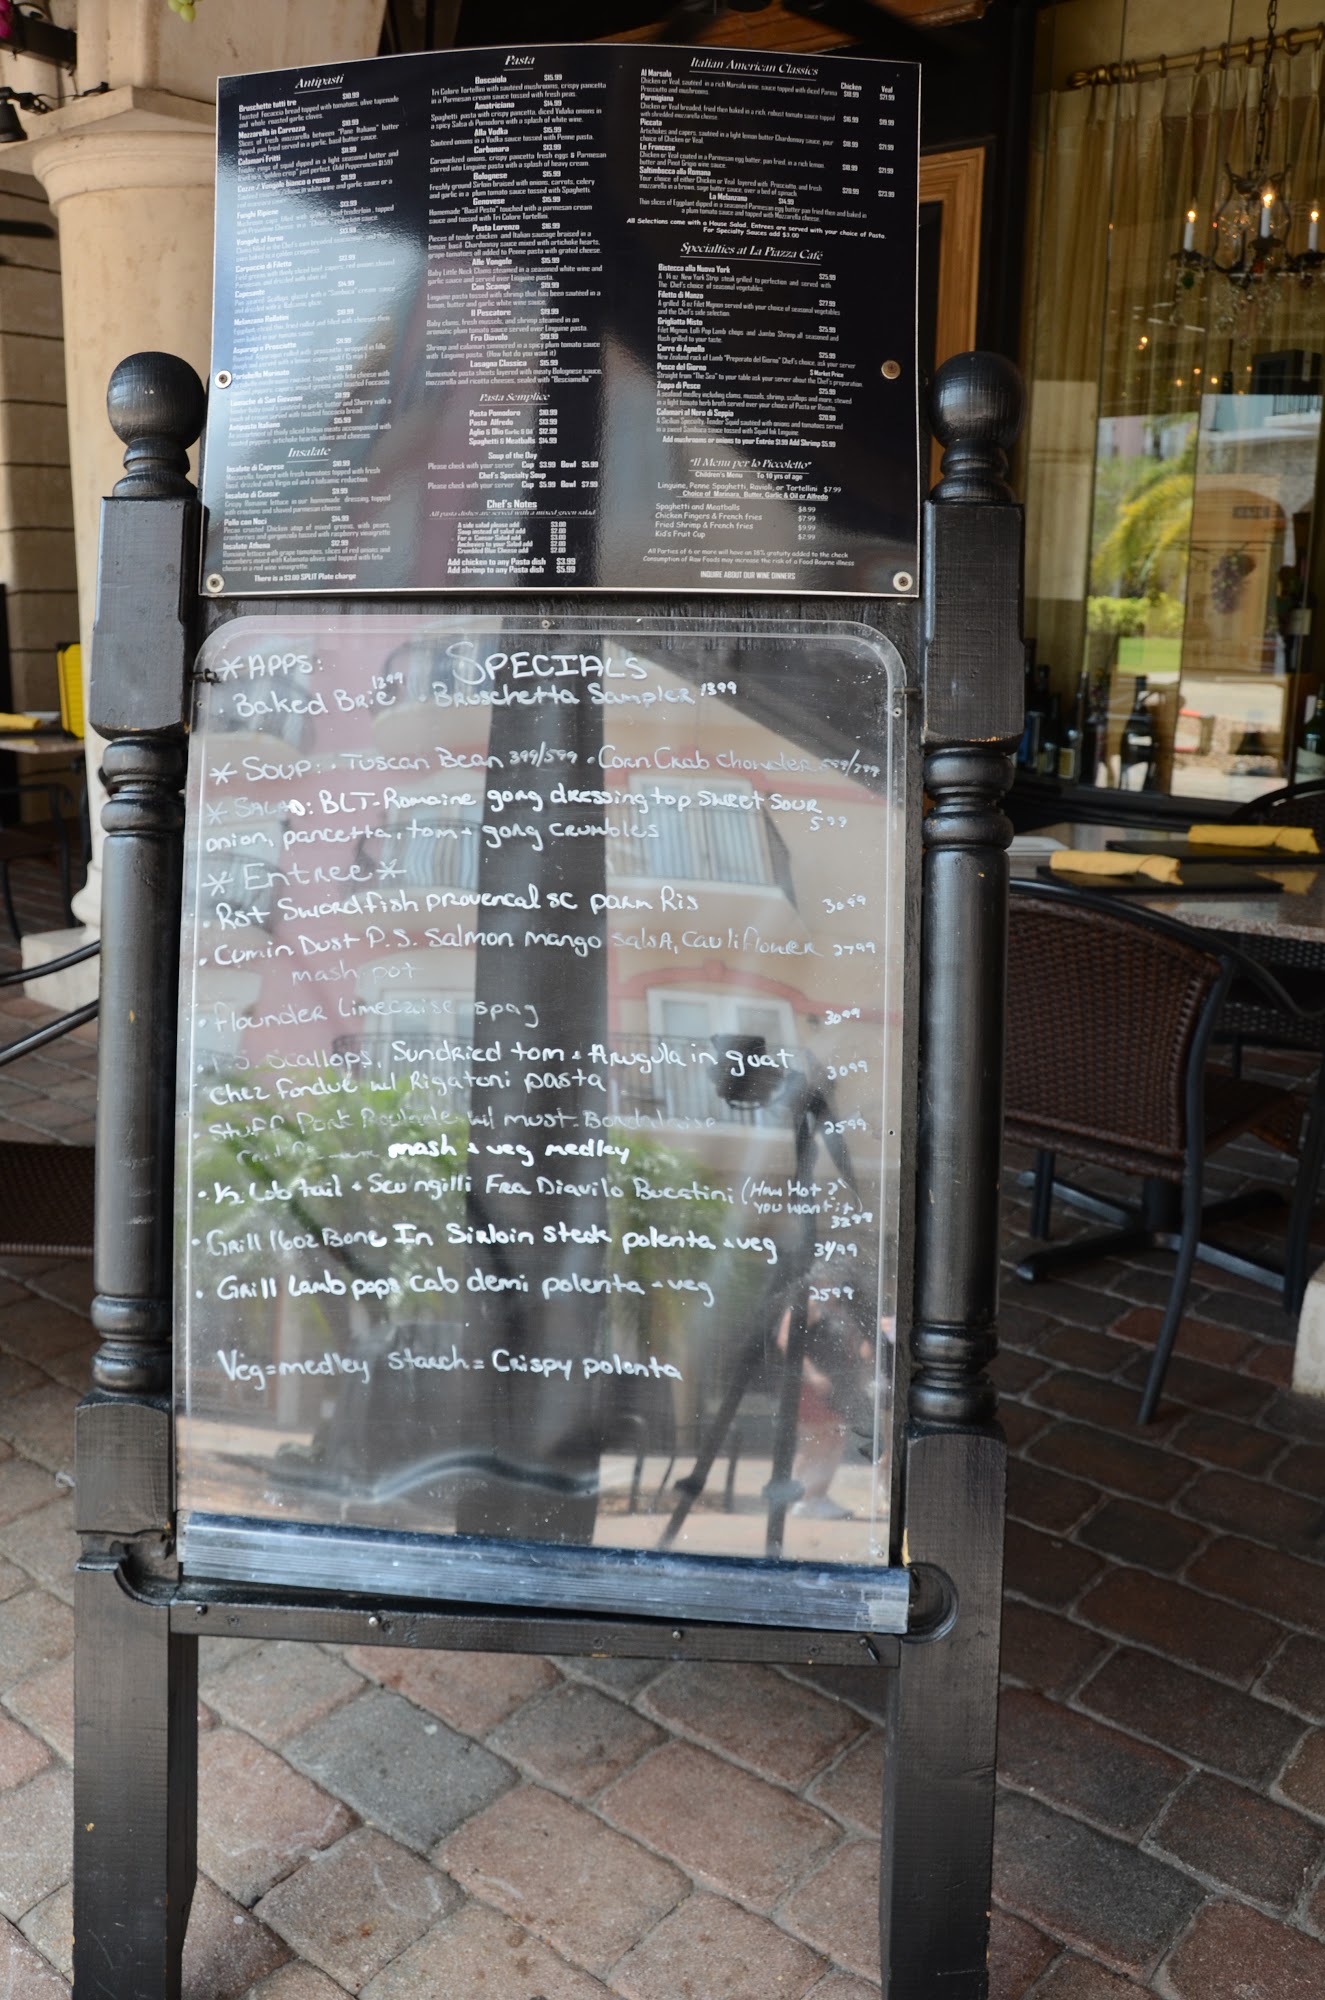 Antipasti
Bruschette tutti tre $10.99
Toasted Foccacia bread topped with tomatoes, olive tapenade
and whole roasted garlic cloves.
Mozzarella in Carrozza $10.99
Slices of fresh mozzarella between "Pane Italiano" batter
dipped, pan fried served in a garlic, basil butter sauce.
Calamari Fritti
Funghi Ripiene $13.99
Vongole al forno
Carpaccio di Filetto
Capesante $14.99
Melanzana Rollatini
Asparagi e Prosciutto
Portobella Marinata
Lumache di San Giovanni
Antipasto Italiano $15.99
An assortment of thinly sliced Italian meats accompanied with
roasted peppers, artichoke hearts, olives and cheeses.
Insalate
Insalata di Caprese $10.99
Mozzarella layered with fresh tomatoes topped with fresh
basil drizzled with Virgin oil and a balsamic reduction.
Insalata di Ceasar $9.99
Crispy Romaine lettuce in our homemade dressing, topped
with croutons and shaved parmesan cheese
Pollo con Noci $14.99
Pecan crusted Chicken atop of mixed greens, with pears,
cranberries and gorgonzola tossed with raspberry vinaigrette
Insalata Athena $12.99
Romaine lettuce with grape tomatoes, slices of red onions and
cucumbers mixed with Kalamata olives and topped with feta
cheese in a red wine vinaigrette.
There is a $3.00 SPLIT Plate charge
Pasta
Boscaiola $15.99
Tri Colore Tortellini with sautéed mushrooms, crispy pancetta
in a Parmesan cream sauce tossed with fresh peas.
Amatriciana $14.99
Spaghetti pasta with crispy pancetta, diced Vidalia onions in
a spicy Salsa di Pomodoro with a splash of white wine.
Alla Vodka $15.99
Sauteed onions in a Vodka sauce tossed with Penne pasta.
Carbonara $13.99
Caramelized onions, crispy pancetta fresh eggs & Parmesan
stirred into Linguine pasta with a splash of heavy cream.
Bolognese $15.99
Freshly ground Sirloin braised with onions, carrots, celery
and garlic in a plum tomato sauce tossed with Spaghetti
Genovese $15.99
Homemade "Basil Pesto" touched with a parmesan cream
sauce and tossed with Tri Colore Tortellini.
Pasta Lorenzo $16.99
Pieces of tender chicken and Italian sausage braised in a
lemon basil Chardonnay sauce mixed with artichoke hearts,
grape tomatoes all added to Penne pasta with grated cheese.
Alle Vongole $15.99
Baby Little Neck Clams steamed in a seasoned white wine and
garlic sauce and served over Linguine pasta.
Con Scampi $19.99
Linguine pasta tossed with shrimp that has been sautéed in a
lemon, butter and garlic white wine sauce.
Il Pescatore $19.99
Baby clams, fresh mussels, and shrimp steamed in an
aromatic plum tomato sauce served over Linguine pasta
Fra Diavolo $19.99
Shrimp and calamari simmered in a spicy plum tomato sauce
with Linguine pasta. (How hot do you want it)
Lasagna Classica $15.99
Homemade pasta sheets layered with meaty Bolognese sauce,
mozzarella and ricotta cheeses, sealed with "Besciamella"
Pasta Semplice
Pasta Pomodoro $10.99
Pasta Alfredo $13.99
Aglio e Olio Garlic & Oil $12.99
Spaghetti & Meatballs $14.99
Soup of the Day
Please check with your server Cup $3.99 Bowl $5.99
Chef's Specialty Soup
Please check with your server Cup $5.99 Bowl $7.99
Chef's Notes
All pasta dishes are served with a mixed green salad
A side salad please add $3.00
Soup instead of salad add $2.00
For a Caesar Salad add $3.00
Anchovies to your Salad add $2.00
Crumbled Blue Cheese add $2.00
Add chicken to any Pasta dish $3.99
Add shrimp to any Pasta dish $5.99
Italian American Classics
Chicken Veal
Al Marsala $18.99 $21.99
Chicken or Veal, sautéed in a rich Marsala wine, sauce topped with diced Parma
Prosciutto and mushrooms.
Parmigiana $16.99 $19.99
Chicken or Veal breaded, fried then baked in a rich, robust tomato sauce topped
with shredded mozzarella cheese.
Piccata $18.99 $21.99
Artichokes and capers, sautéed in a light lemon butter Chardonnay sauce, your
choice of Chicken or Veal.
Le Francese $18.99 $21.99
Chicken or Veal coated in a Parmesan egg batter, pan fried, in a rich lemon,
butter and Pinot Grigio wine sauce.
Saltimbocca alla Romana $20.99 $23.99
Your choice of either Chicken or Veal layered with Prosciutto, and fresh
mozzarella in a brown, sage butter sauce, over a bed of spinach
La Melanzana $14.99
Thin slices of Eggplant dipped in a seasoned Parmesan egg batter pan fried then and baked in
a plum tomato sauce and topped with Mozzarella cheese.
All Selections come with a House Salad. Entrees are served with your choice of Pasta.
For Specialty Sauces add $3.00
Specialties at La Piazza Café
Bistecca alla Nuova York $25.99
A 14 oz New York Strip steak grilled to perfection and served with
The Chef's choice of seasonal vegetables.
Filetto di Manzo $27.99
A grilled 8 oz Filet Mignon served with your choice of seasonal vegetables
and the Chef's side selection.
Grigliatta Misto $25.99
Filet Mignon, Lolli Pop Lamb chops and Jumbo Shrimp all seasoned and
flash grilled to your taste.
Carre di Agnello $25.99
New Zealand rack of Lamb "Preparato del Giorno" Chef's choice, ask your server
Pesce del Giorno $ Market Price
Straight from "The Sea" to your table ask your server about the Chef's preparation.
Zuppa di Pesce $25.99
A seafood medley including clams, mussels, shrimp, scallops and more, stewed
in a light tomato herb broth served over your choice of Pasta or Risotto.
Calamari al Nero di Seppia $20.99
A Sicilian Specialty, Tender Squid sautéed with onions and tomatoes served
in a sweet Sambuca sauce tossed with Squid Ink Linguine
Add mushrooms or onions to your Entrée $1.99 Add Shrimp $5.99
"Il Menu per lo Piccoletto"
Children's Menu To 10 yrs of age
Linguine, Penne Spaghetti, Ravioli, or Tortellini $7.99
Choice of Marinara, Butter, Garlic & Oil or Alfredo
Spaghetti and Meatballs $8.99
Chicken Fingers & French fries $7.99
Fried Shrimp & French fries $9.99
Kid's Fruit Cup $2.99
All Parties of 6 or more will have an 18% gratuity added to the check
Consumption of Raw Foods may increase the risk of a Food Bourne illness
INQUIRE ABOUT OUR WINE DINNERS
*APPS: SPECIALS
· Baked Brie 1299 · Bruschetta Sampler 1399
* Soup: · Tuscan Bean 399/599 · Corn Crab Chowder 599/799
* Salad: BLT-Romaine gorg dressing top sweet sour
onion, pancetta, tom + gorg crumbles 599
* Entree *
· Rst Swordfish provencal sc parm Ris 3099
· Cumin Dust P.S. Salmon mango salsa, Cauliflower 2799
mash pot
· flounder Limecaise spag 3099
Scallops, Sundried tom + Arugula in goat
chez fondue w/ Rigatoni pasta 3099
· Stuff Pork Roulade w/ must. 2599
mash + veg medley
· ½ Lob tail + Scungilli Fra Diavilo Bucatini (How Hot?
you want it) 3299
· Grill 16oz Bone In Sirloin steak polenta + veg 3499
· Grill Lamb pops cab demi polenta + veg 2599
Veg = medley starch = Crispy polenta